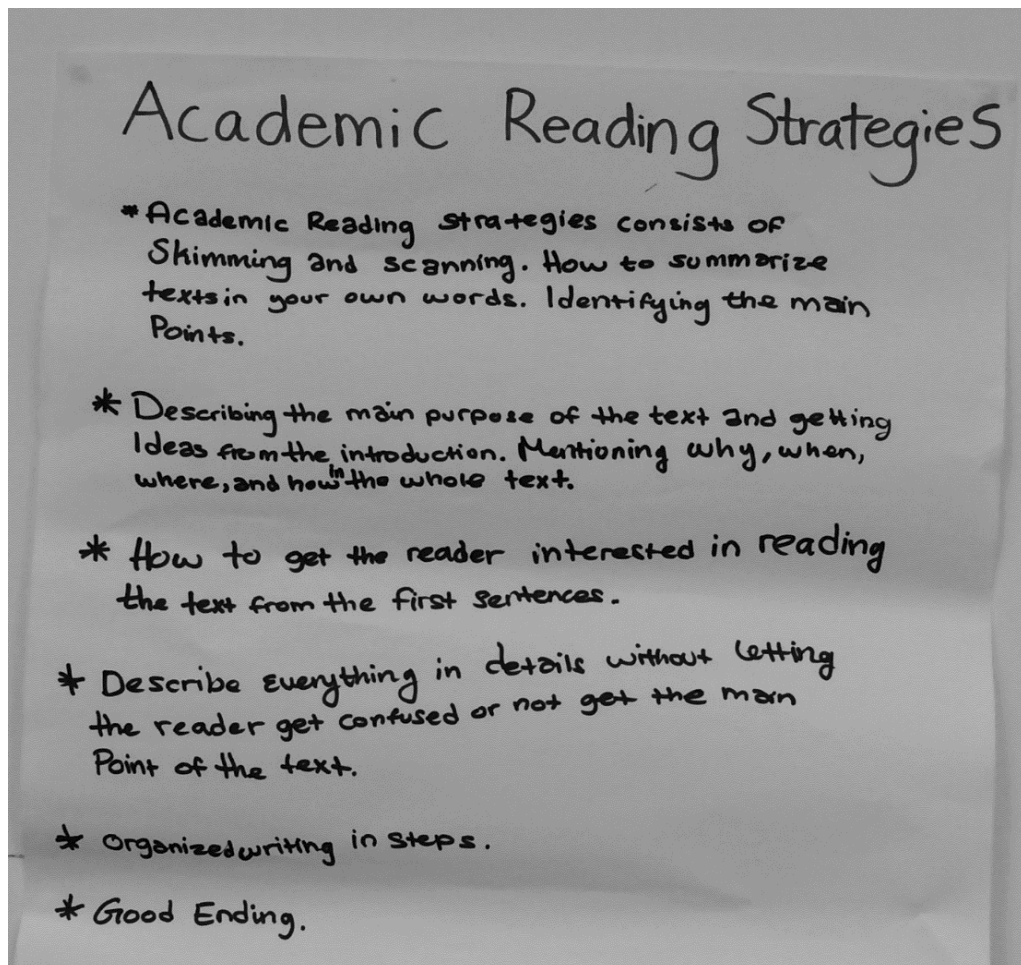 Academic Reading Strategies
* Academic Reading strategies consists of
Skimming and scanning. How to summarize
texts in your own words. Identifying the main
Points.
* Describing the main purpose of the text and getting
Ideas from the introduction. Mentioning why, when,
where, and how in the whole text.
* How to get the reader interested in reading
the text from the first sentences.
* Describe everything in details without letting
the reader get confused or not get the main
Point of the text.
* Organized writing in steps.
* Good Ending.